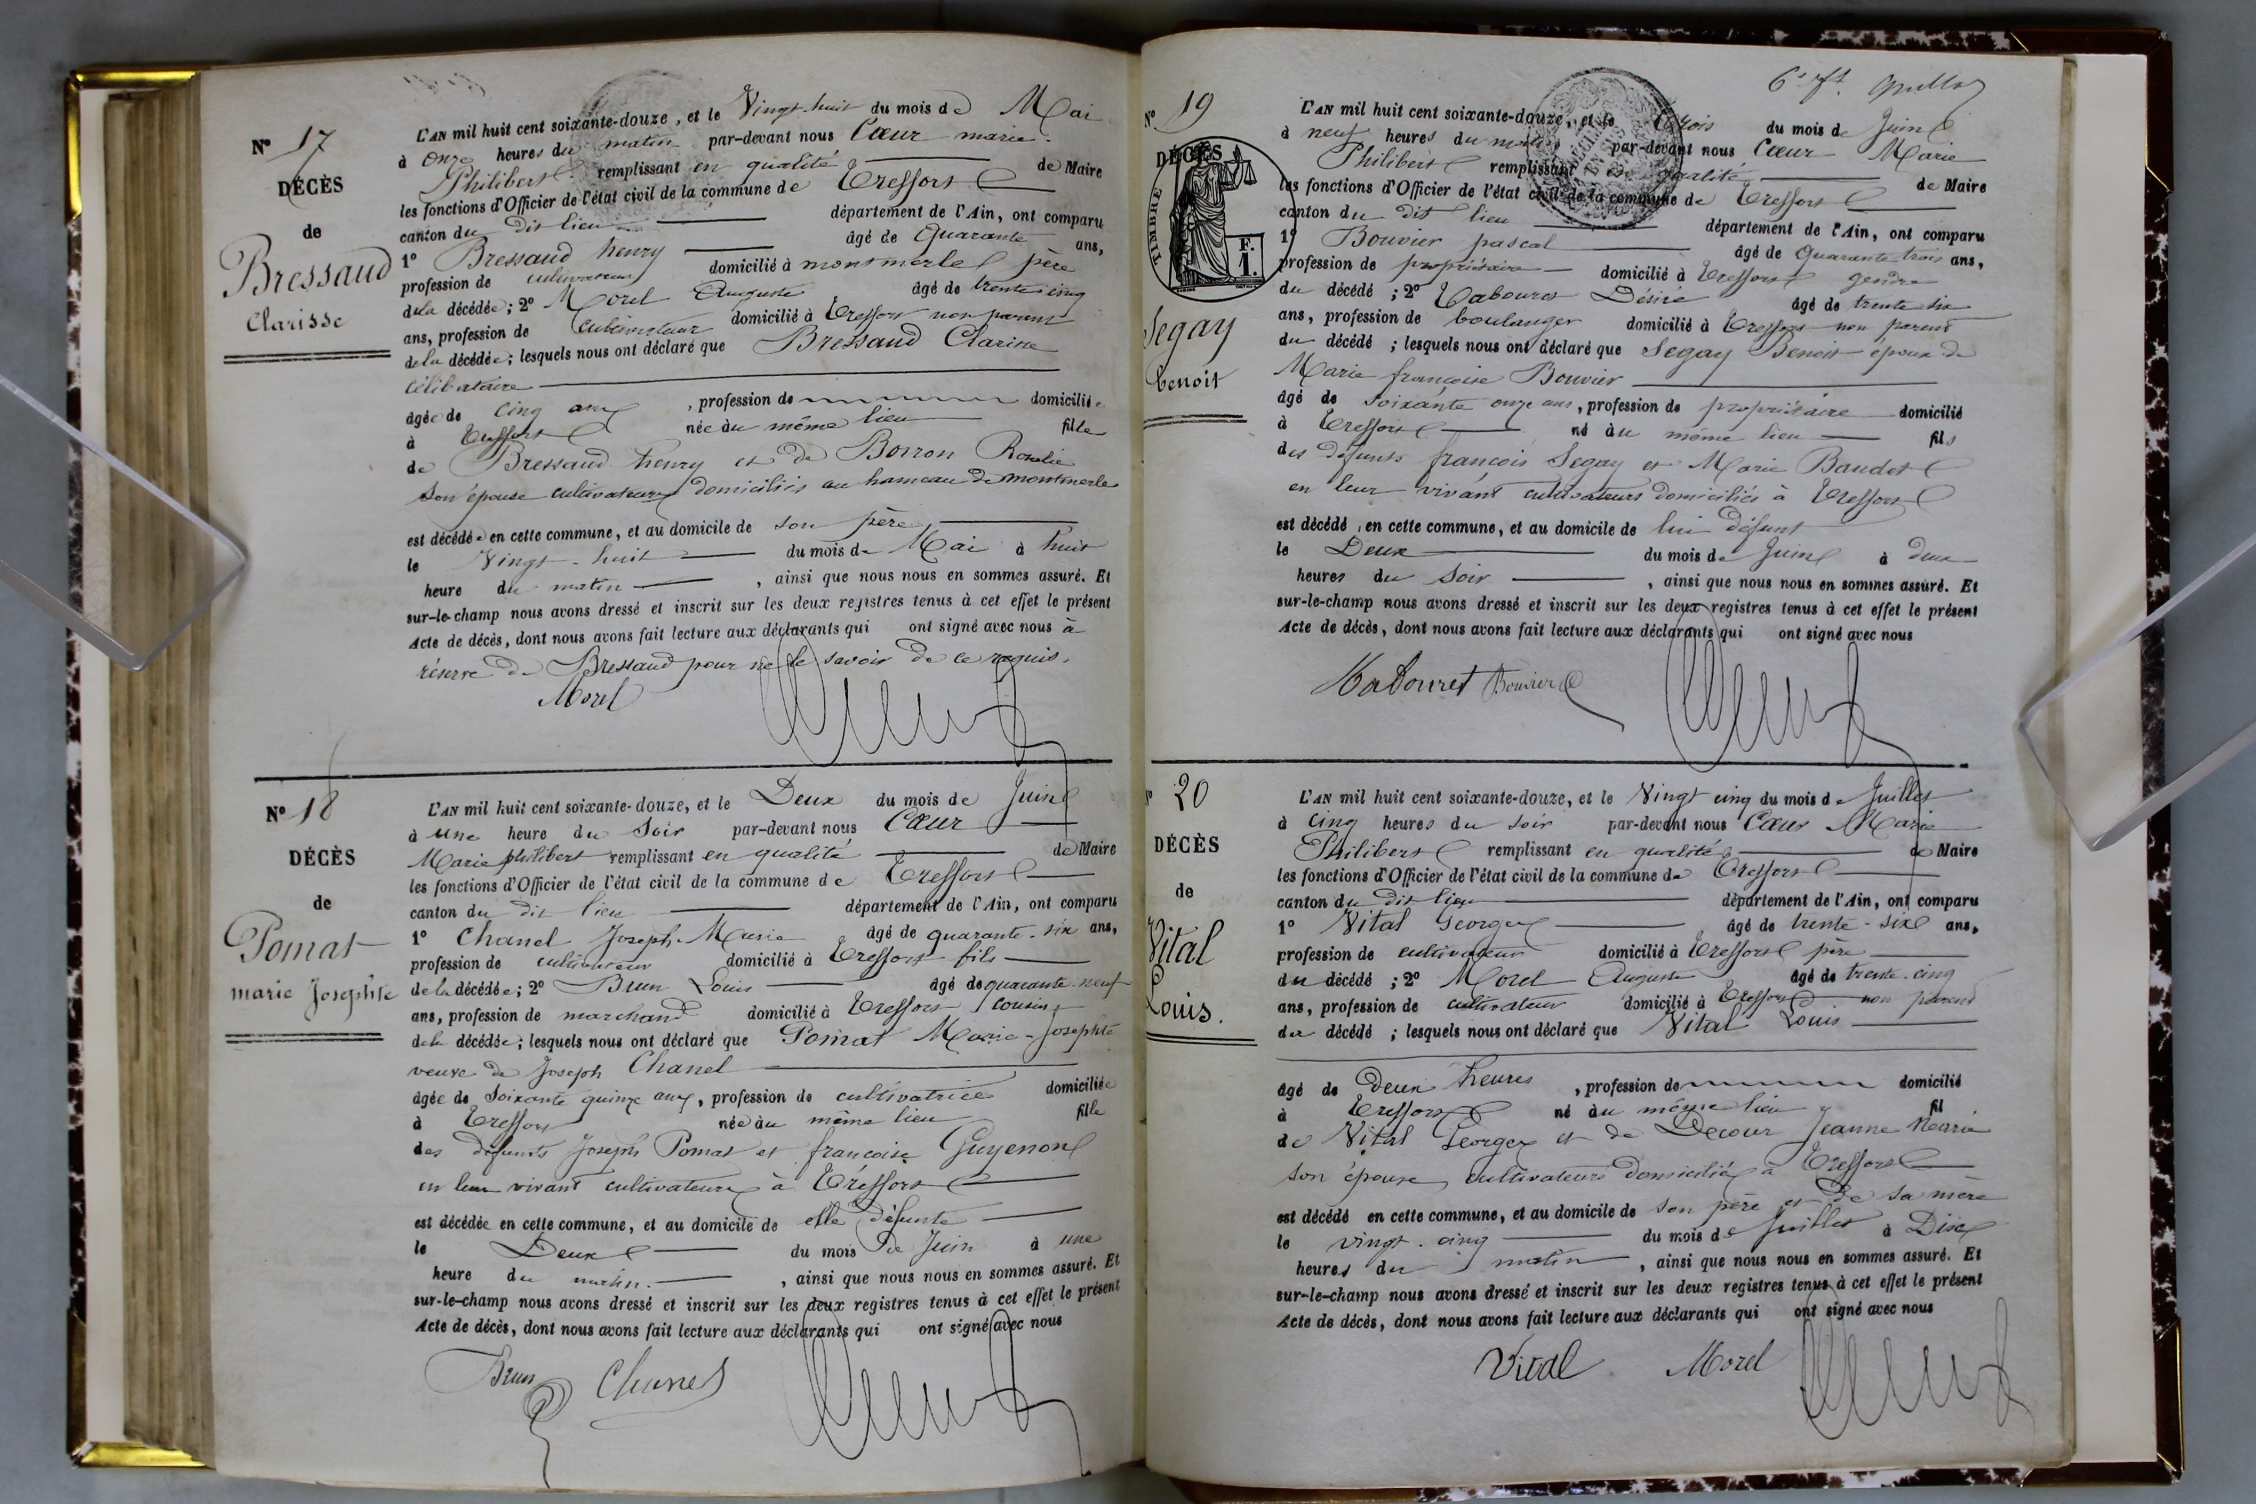 N° 17
DÉCÈS
de
Bressaud
Clarisse
L'AN mil huit cent soixante-douze, et le Vingt-huit du mois de Mai
à onze heures du matin par-devant nous Cœur marie
Philibert remplissant en qualité de Maire
les fonctions d'Officier de l'état civil de la commune de Treffort
canton du dit lieu département de l'Ain, ont comparu
1° Bressaud henry âgé de Quarante ans,
profession de cultivateur domicilié à montmerle père
de la décédée ; 2° Morel Auguste âgé de trente cinq
ans, profession de Cultivateur domicilié à Treffort non parent
de la décédée ; lesquels nous ont déclaré que Bressaud Clarisse
Célibataire
âgée de cinq ans, profession de domiciliée
à Treffort née au même lieu fille
de Bressaud henry et de Borron Rosalie
son épouse cultivateurs domiciliés au hameau de montmerle
est décédée en cette commune, et au domicile de son père
le Vingt-huit du mois de Mai à huit
heure du matin, ainsi que nous nous en sommes assuré. Et
sur-le-champ nous avons dressé et inscrit sur les deux registres tenus à cet effet le présent
Acte de décès, dont nous avons fait lecture aux déclarants qui ont signé avec nous à
réserve de Bressaud pour ne le savoir de ce requis.
Morel
N° 18
DÉCÈS
de
Pomat
marie Josephte
L'AN mil huit cent soixante-douze, et le Deux du mois de Juin
à une heure du Soir par-devant nous Cœur
Marie philibert remplissant en qualité de Maire
les fonctions d'Officier de l'état civil de la commune de Treffort
canton du dit lieu département de l'Ain, ont comparu
1° Chanel Joseph-Marie âgé de quarante-six ans,
profession de cultivateur domicilié à Treffort fils
de la décédée ; 2° Brun Louis âgé de quarante-neuf
ans, profession de marchand domicilié à Treffort cousin
de la décédée ; lesquels nous ont déclaré que Pomat Marie-Josephte
veuve de Joseph Chanel
âgée de Soixante quinze ans, profession de cultivatrice domiciliée
à Treffort née au même lieu fille
des défunts Joseph Pomat et françoise Guyenon
en leur vivant cultivateurs à Tréffort
est décédée en cette commune, et au domicile de elle défunte
le Deux du mois de Juin à une
heure du matin, ainsi que nous nous en sommes assuré. Et
sur-le-champ nous avons dressé et inscrit sur les deux registres tenus à cet effet le présent
Acte de décès, dont nous avons fait lecture aux déclarants qui ont signé avec nous
Brun Chanel
N° 19
DÉCÈS
TIMBRE
F.
1.
Segay
benoit
L'AN mil huit cent soixante-douze, et le trois du mois de Juin
à neuf heures du matin par-devant nous Cœur Marie
Philibert remplissant en qualité de Maire
les fonctions d'Officier de l'état civil de la commune de Treffort
canton du dit lieu département de l'Ain, ont comparu
1° Bouvier pascal âgé de Quarante trois ans,
profession de propriétaire domicilié à Treffort gendre
du décédé ; 2° Tabouret Désiré âgé de trente six
ans, profession de boulanger domicilié à Treffort non parent
du décédé ; lesquels nous ont déclaré que Segay Benoit époux de
Marie françoise Bouvier
âgé de soixante onze ans, profession de propriétaire domicilié
à Treffort né au même lieu fils
des défunts francois Segay et Marie Baudet
en leur vivant cultivateurs domiciliés à Treffort
est décédé en cette commune, et au domicile de lui défunt
le Deux du mois de Juin à deux
heures du Soir, ainsi que nous nous en sommes assuré. Et
sur-le-champ nous avons dressé et inscrit sur les deux registres tenus à cet effet le présent
Acte de décès, dont nous avons fait lecture aux déclarants qui ont signé avec nous
Tabouret Bouvier
20
DÉCÈS
de
Vital
Louis.
L'AN mil huit cent soixante-douze, et le Vingt cinq du mois de Juillet
à Cinq heures du soir par-devant nous Cœur Marie
Philibert remplissant en qualité de Maire
les fonctions d'Officier de l'état civil de la commune de Treffort
canton du dit lieu département de l'Ain, ont comparu
1° Vital Georges âgé de trente-six ans,
profession de cultivateur domicilié à Treffort père
du décédé ; 2° Morel Auguste âgé de trente-cinq
ans, profession de cultivateur domicilié à Treffort non parent
du décédé ; lesquels nous ont déclaré que Vital Louis
âgé de Deux heures, profession de domicilié
à Treffort né au même lieu fil
de Vital Georges et de Decour Jeanne Marie
son épouse, cultivateurs domiciliés à Treffort
est décédé en cette commune, et au domicile de son père et de sa mère
le vingt-cinq du mois de Juillet à Dix
heures du matin, ainsi que nous nous en sommes assuré. Et
sur-le-champ nous avons dressé et inscrit sur les deux registres tenus à cet effet le présent
Acte de décès, dont nous avons fait lecture aux déclarants qui ont signé avec nous
Vital Morel